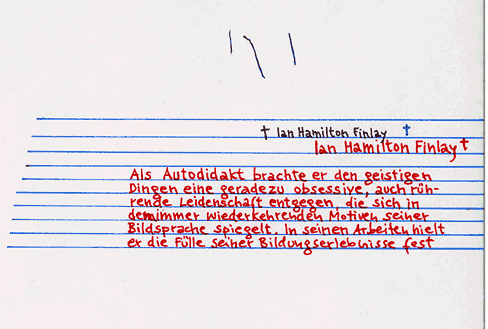 † Ian Hamilton Finlay †
Ian Hamilton Finlay †
Als Autodidakt brachte er den geistigen
Dingen eine geradezu obsessive, auch rüh-
rende Leidenschaft entgegen, die sich in
demimmer wiederkehrenden Motiven seiner
Bildsprache spiegelt. In seinen Arbeiten hielt
er die Fülle seiner Bildungserlebnisse fest